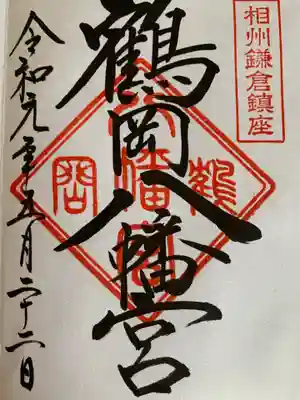 相州鎌倉鎮座
鶴岡八幡宮
鶴岡
八幡宮
令和元年五月二十二日